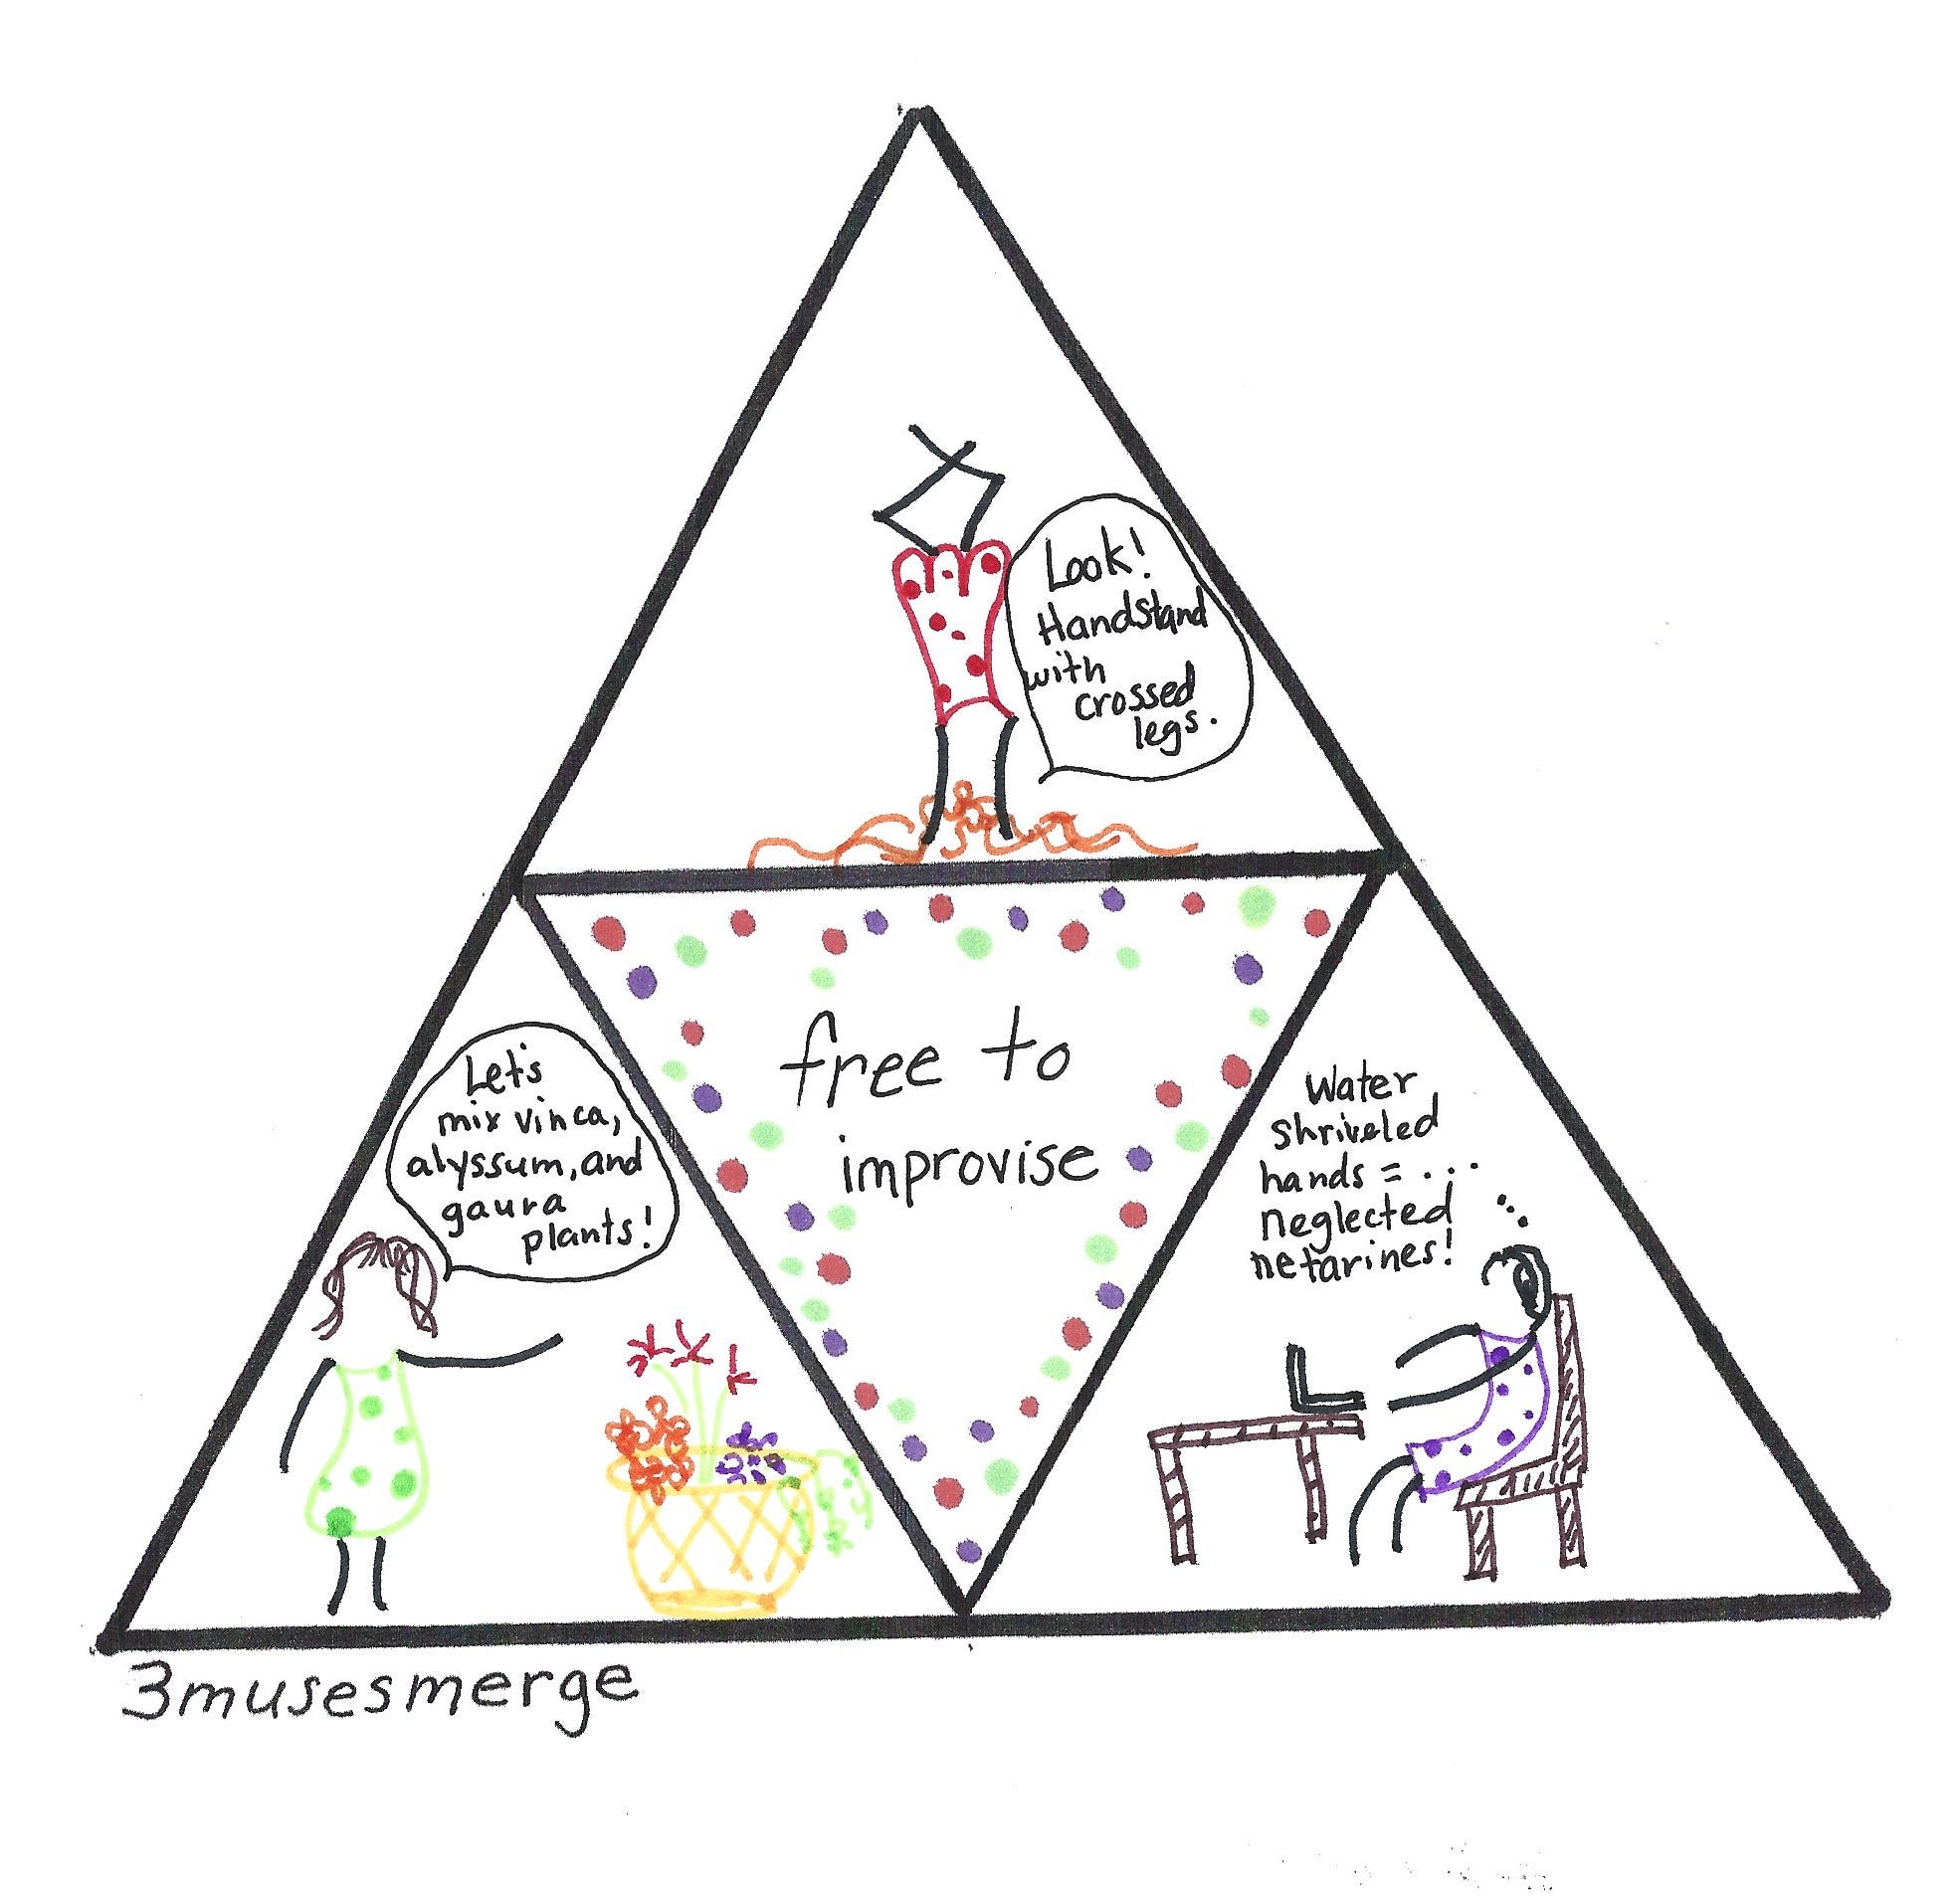 Look!
Handstand
with
crossed
legs.
free to
improvise
Let's
mix vinca,
alyssum, and
gaura
plants!
Water
shriveled
hands = ...
neglected
netarines!
3musesmerge